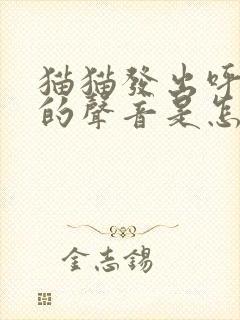 猫猫發出呼
的聲音是怎
金志錫